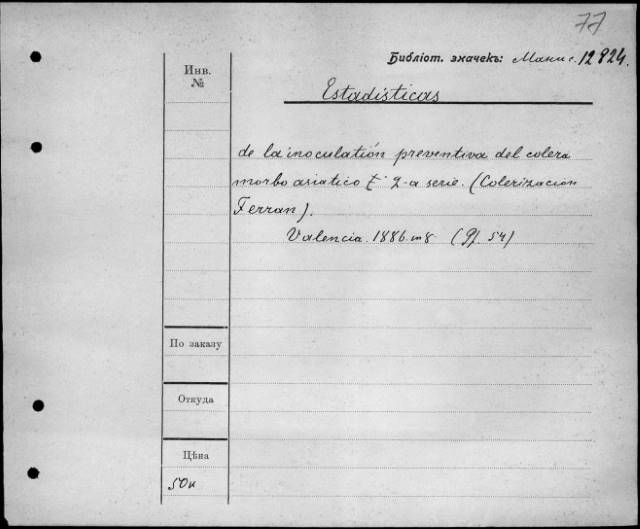 77
Библіот. значекъ: 12924.
Инв.
№
Estadisticas
de la inoculatión preventiva del colera
morbo asiatico a serie. (Colerizacion
Ferran).
Valencia. 1886. in 8 (Pf. 54)
По заказу
Откуда
Цѣна
50к